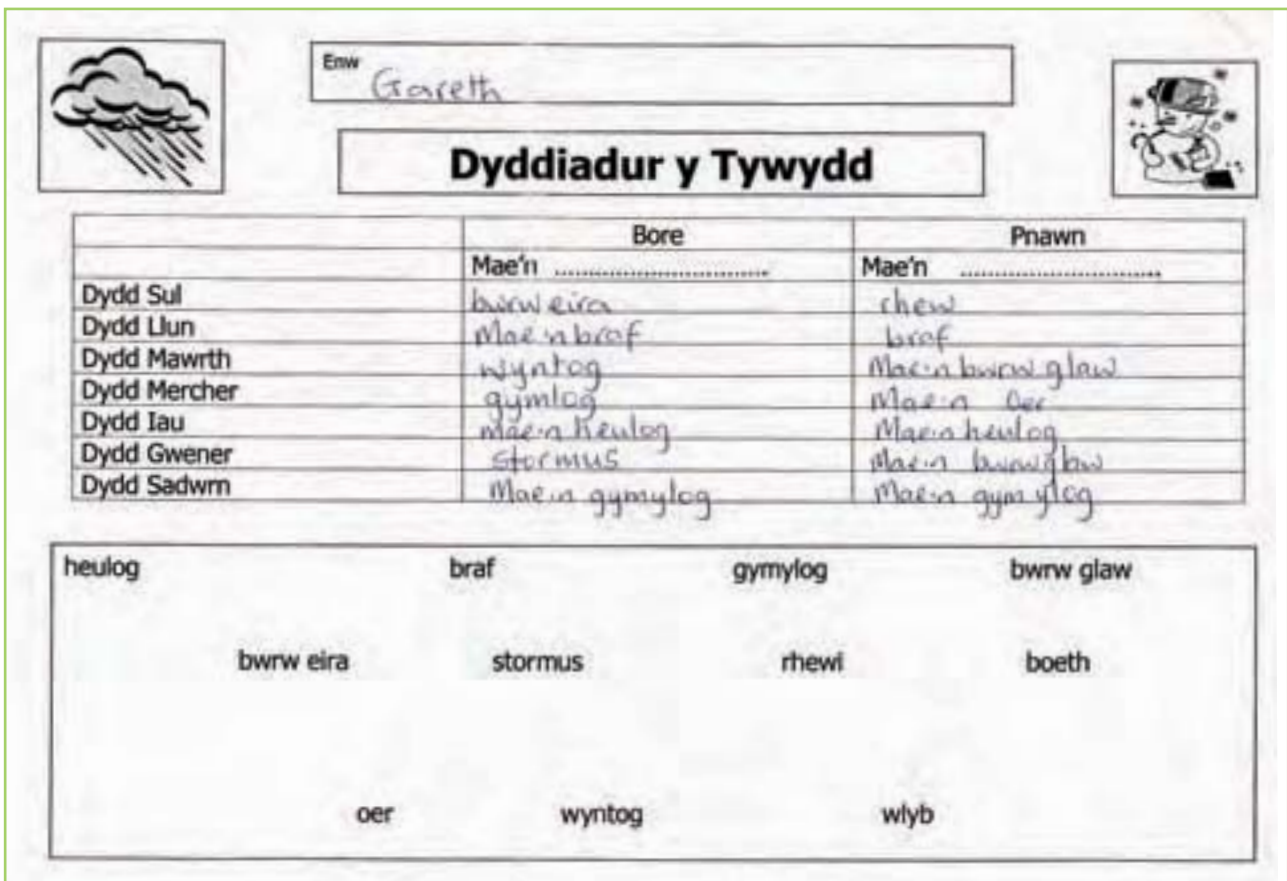 Enw
Gareth
Dyddiadur y Tywydd
Bore Pnawn
Mae'n ........................... Mae'n ...........................
Dydd Sul bwrw eira rhew
Dydd Llun Mae'n braf braf
Dydd Mawrth wyntog Mae'n bwrw glaw
Dydd Mercher gymlog Mae'n oer
Dydd Iau mae'n heulog Mae'n heulog
Dydd Gwener stormus Mae'n bwrw
Dydd Sadwrn Mae'n gymylog Mae'n gymylog
heulog braf gymylog bwrw glaw
bwrw eira stormus rhewi boeth
oer wyntog wlyb